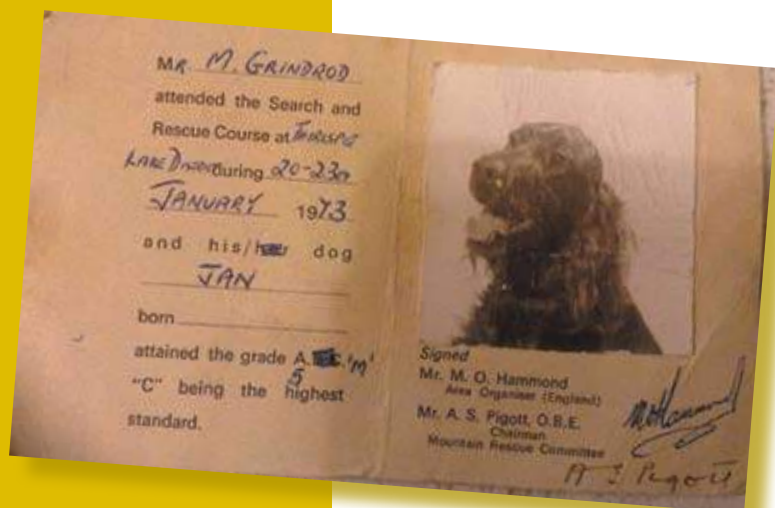 Mr. M. GRINDROD
attended the Search and
Rescue Course at
during 20-23
JANUARY 1973
and his/her dog
JAN
born
attained the grade A. 'M'
5
"C" being the highest
standard.
Signed
Mr. M. O. Hammond
Area Organiser (England)
Mr. A. S. Pigott, O.B.E.
Chairman
Mountain Rescue Committee
MO Hammond
A S Pigott